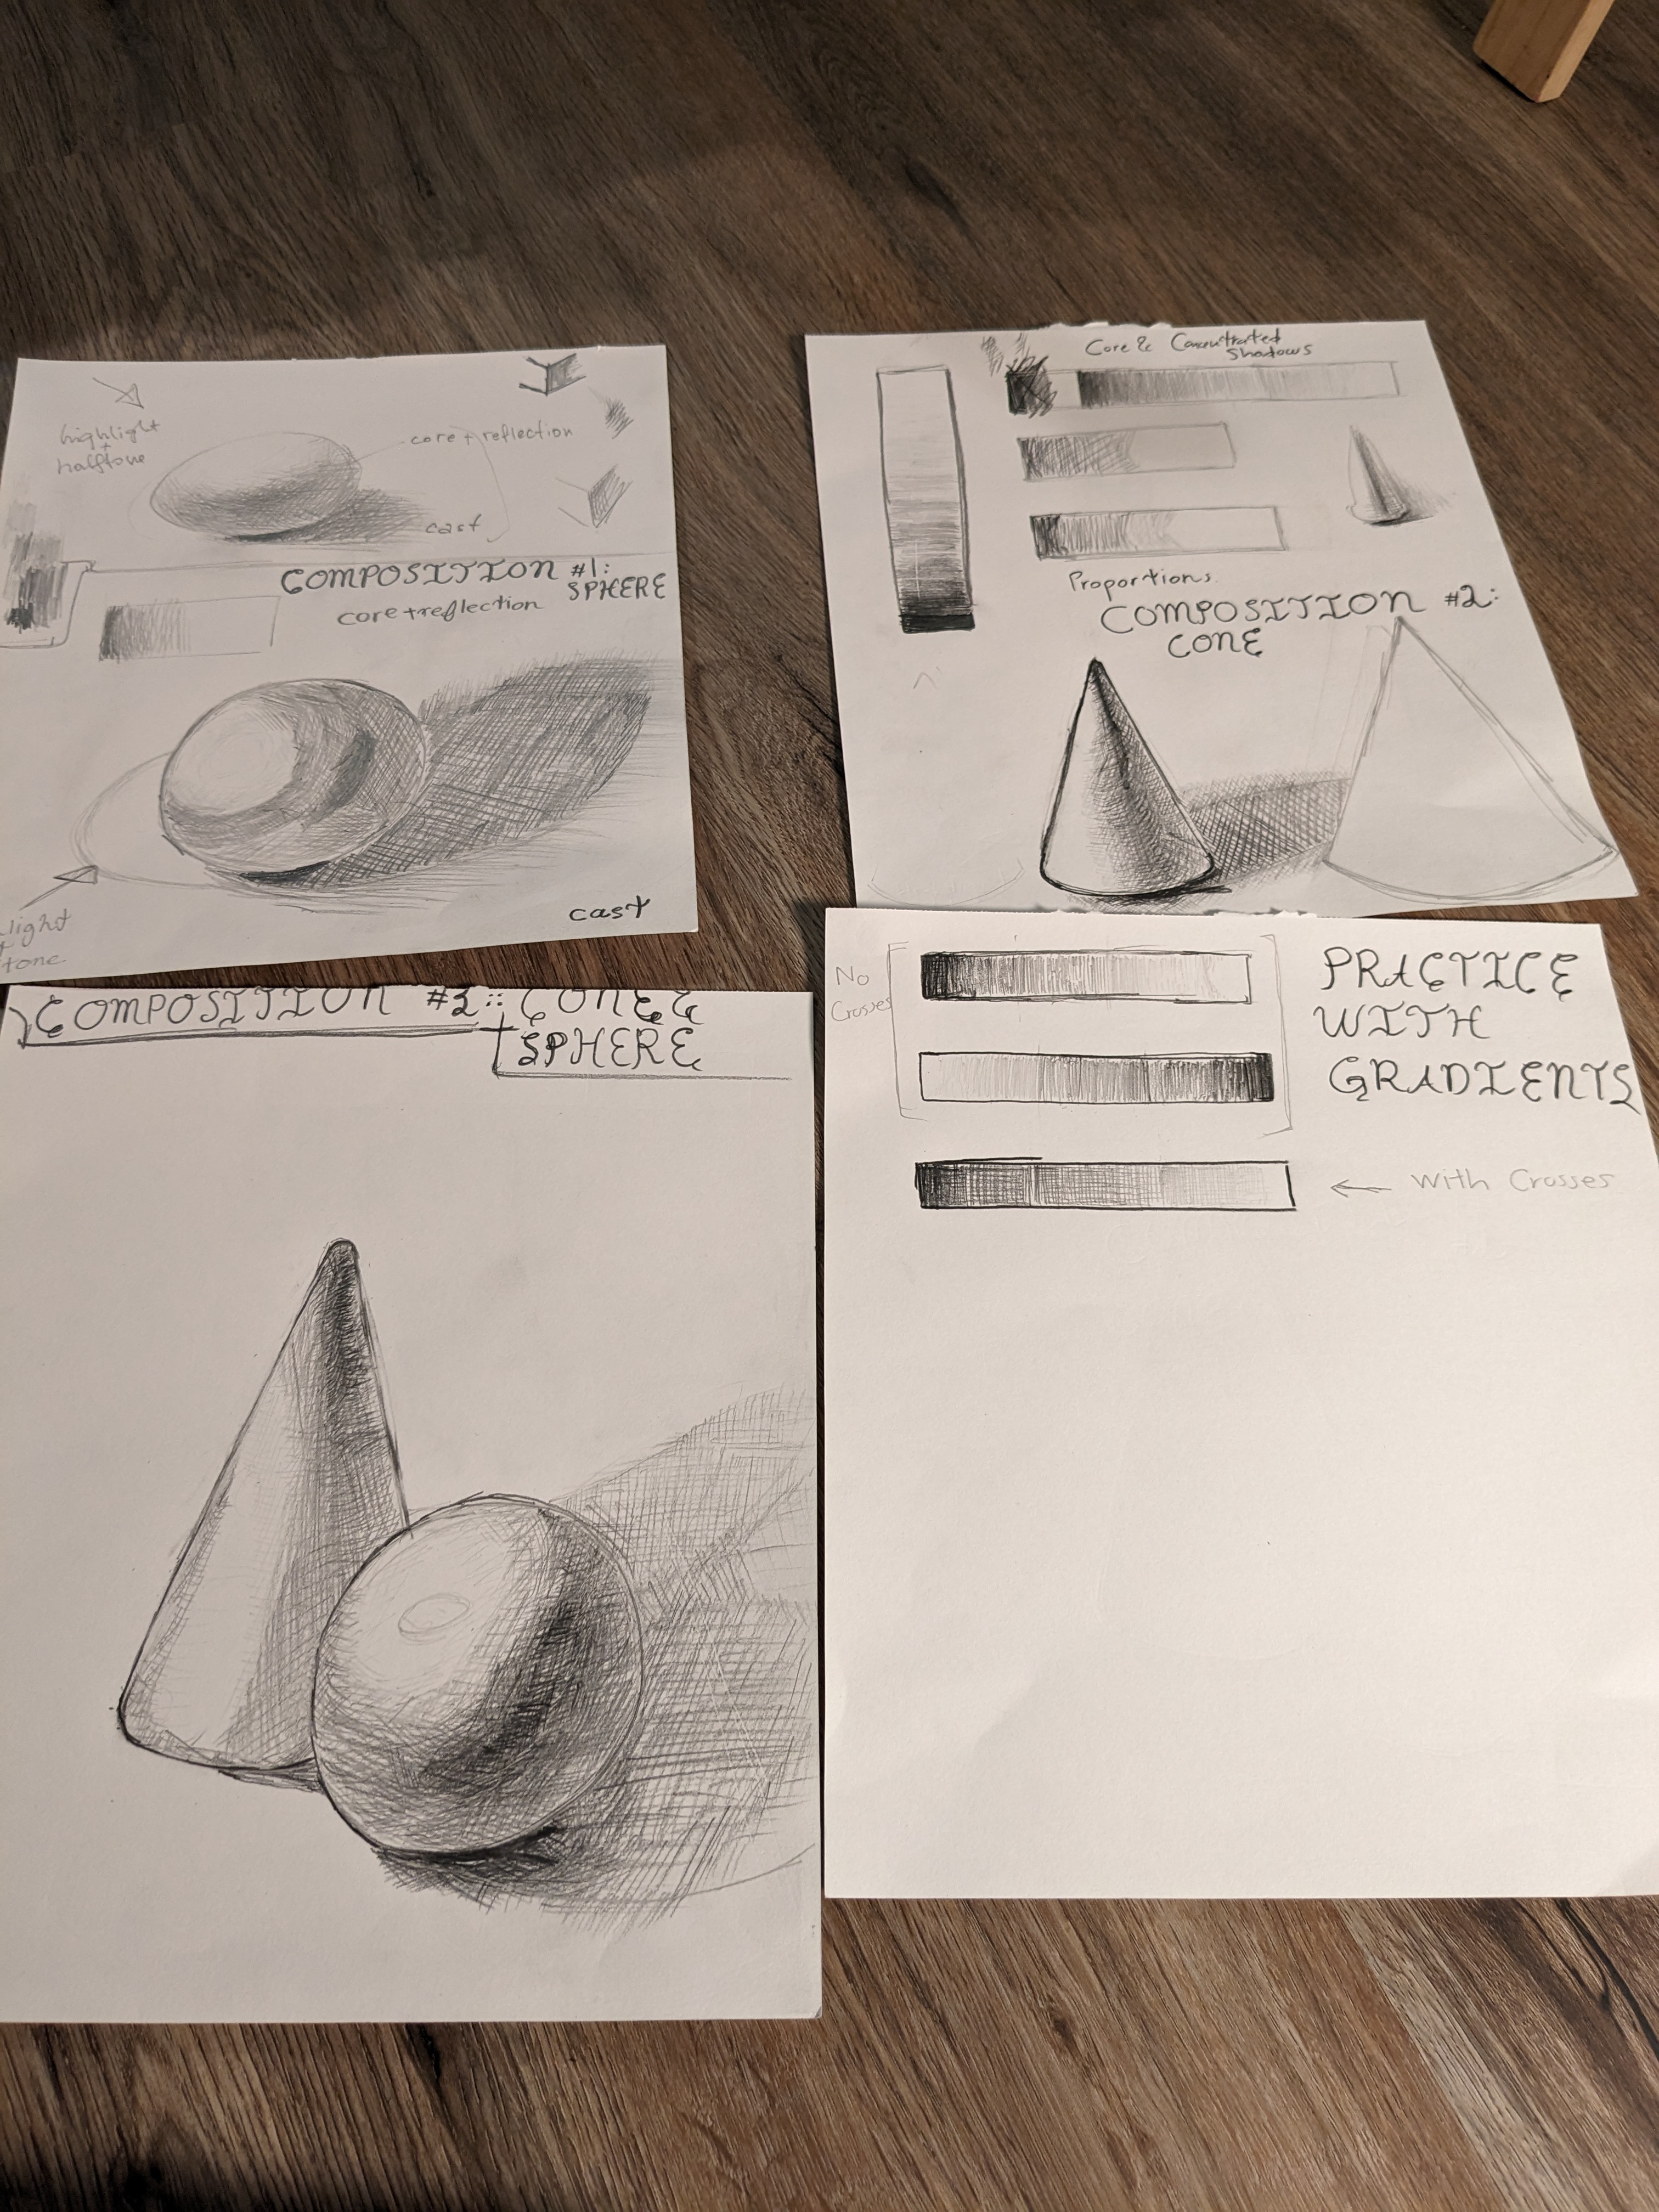 highlight
+
halftone
core + reflection
cast
COMPOSITION #1:
SPHERE
core + reflection
light
tone
cast
Core & Concentrated
Shadows
Proportions.
COMPOSITION #2:
CONE
COMPOSITION #3: CONE &
SPHERE
No
Crosses
PRACTICE
WITH
GRADIENTS
With Crosses